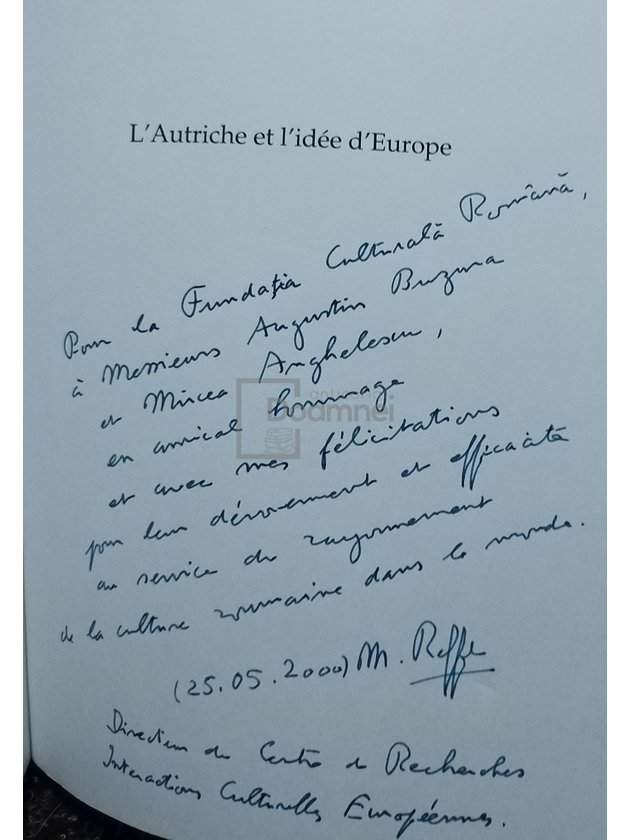 L'Autriche et l'idée d'Europe
Pour la Fundaţia Culturală Română,
à Messieurs Augustin Buzura
et Mircea Anghelescu,
en amical hommage
et avec mes félicitations
pour leur dévouement et efficacité
au service du rayonnement
de la culture roumaine dans le monde.
(25.05.2000) M. Reffe
Directeur du Centre de Recherches
Interactions Culturelles Européennes.
anticariat
Doamnei